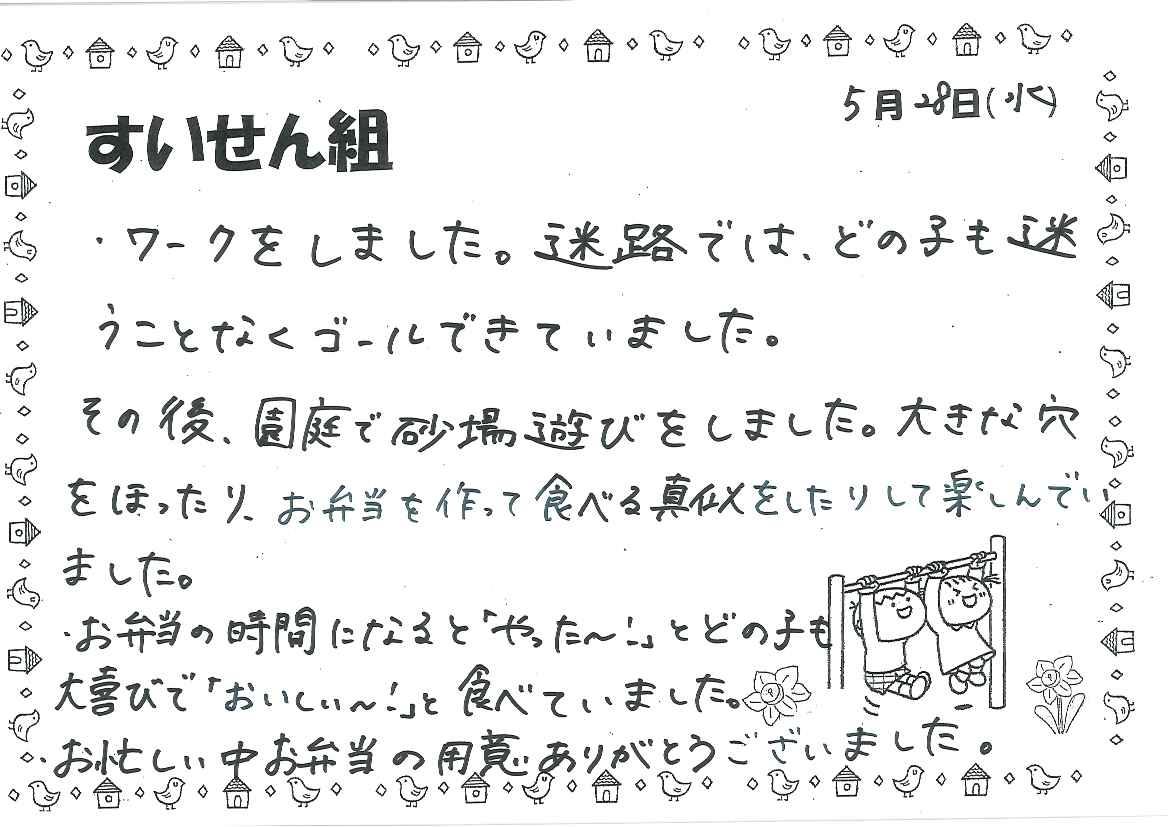 5月28日(水)
すいせん組
・ワークをしました。迷路では、どの子も迷
うことなくゴールできていました。
その後、園庭で砂場遊びをしました。大きな穴
をほったり、お弁当を作って食べる真似をしたりして楽しんでい
ました。
・お弁当の時間になると「やったー！」とどの子も
大喜びで「おいしぃ〜！」と食べていました。
・お忙しい中お弁当の用意ありがとうございました。